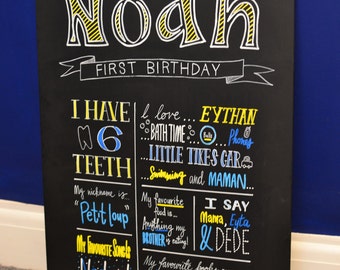 Noah
FIRST BIRTHDAY
I HAVE
6
TEETH
My nickname is
"Petit loup"
My Favourite Songs
I love... EYTHAN
BATH TIME... Phones
LITTLE TIKES CAR...
Swimming and MAMAN...
My favourite
food is...
Anything my
BROTHER is eating!
I SAY
Mama, Eyta
& DEDE
My favourite books